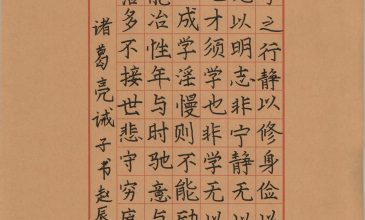 子之行静以修身俭以
无以明志非宁静无以
也才须学也非学无以
以成学淫慢则不能励
能冶性年与时驰意与
落多不接世悲守穷庐
诸葛亮诫子书赵辰